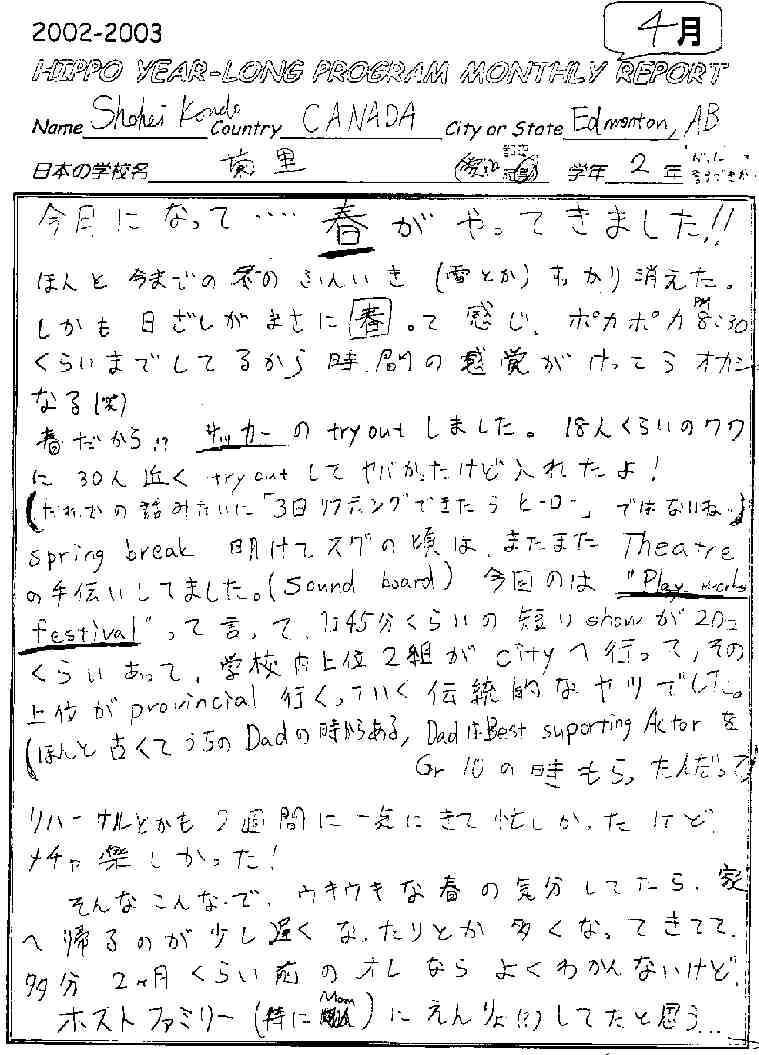 2002-2003
4月
HIPPO YEAR-LONG PROGRAM MONTHLY REPORT
Name Shohei Kondo Country CANADA City or State Edmonton, AB
日本の学校名 学年 2 年
今月になって‥‥春がやってきました!!
ほんと今までの冬のふんいき(雪とか)すっかり消えた。
しかも日ざしがまさに春。って感じ、ポカポカPM8:30
くらいまでしてるから時間の感覚がけっこうオカシク
なる(笑)
春だから!? サッカーのtry outしました。18人くらいのワク
に30人近くtry outしてヤバかったけど入れたよ!
(だれかの話みたいに「3日リフティングできたらヒーロー」ではないね…)
spring break 明けてスグの頃は、またまたTheatre
の手伝いしてました。(Sound board) 今回のは "Play Works
festival"って言って、1つ45分くらいの短いshowが20コ
くらいあって、学校内上位2組がcityへ行って、その
上位がprovincial行くっていく伝統的なヤツでした。
(ほんと古くてうちのDadの時からある, DadはBest suporting Actorを
Gr 10の時もらったんだって)
リハーサルとかも2週間に一気にきて忙しかったけど、
メチャ楽しかった!
そんなこんなで、ウキウキな春の気分してたら、家
へ帰るのが少し遅くなったりとか多くなってきてて、
多分2ヶ月くらい前のオレならよくわかんないけど、
ホストファミリー(特にMom)にえんりょ(?)してたと思う…